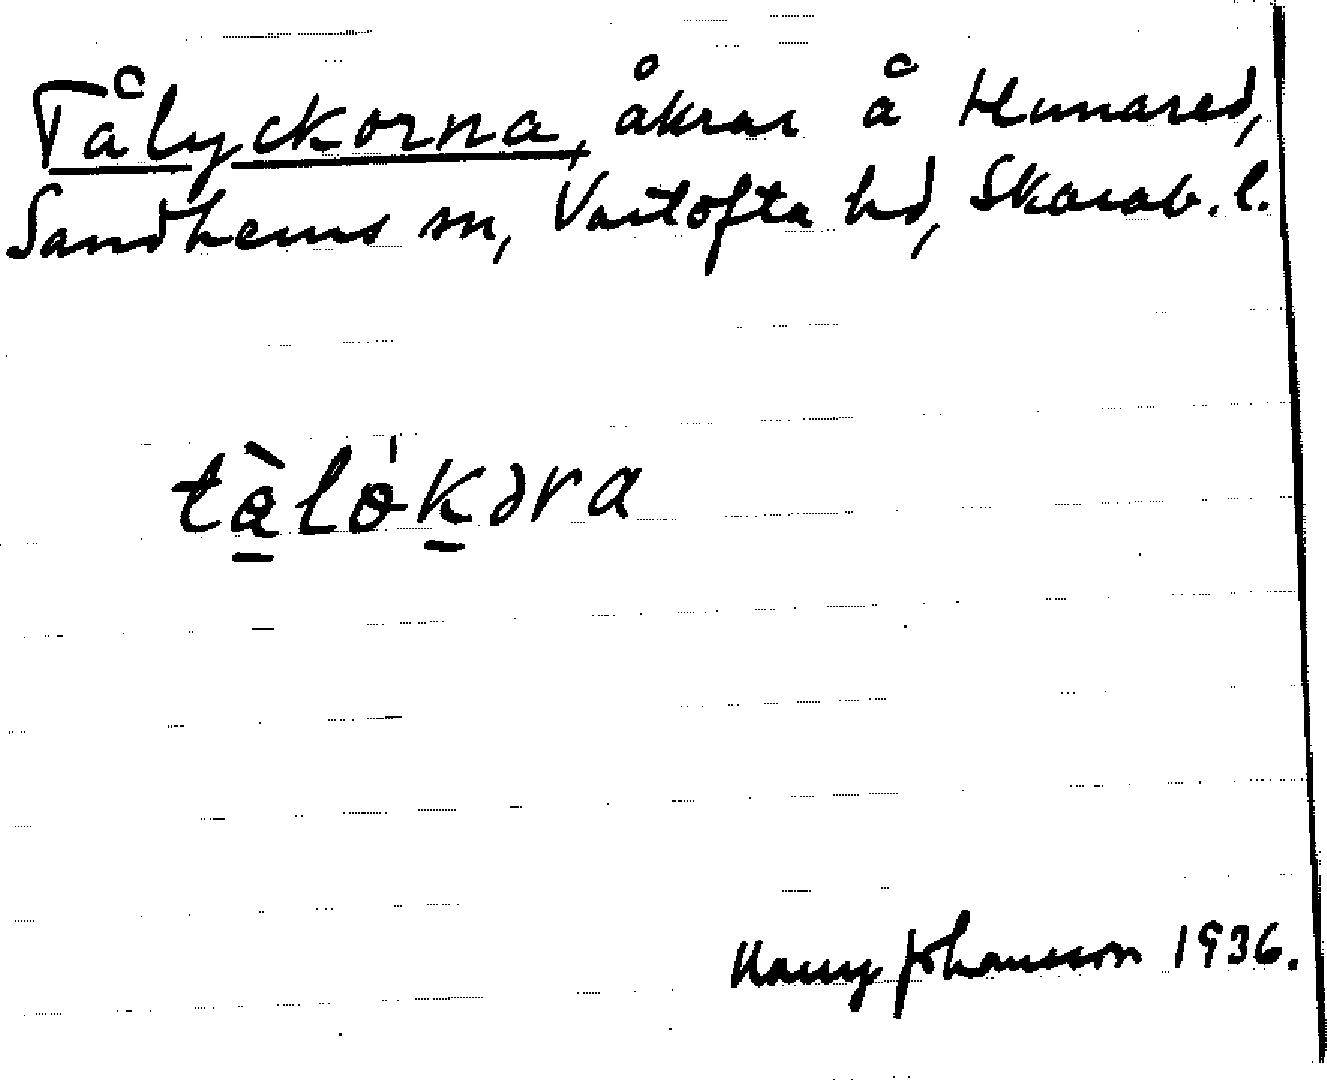 Tålyckorna, åkrar å Hunared,
Sandhems sn, Vartofta hd, Skarab. l.
tàlókəra
Harry Johansson 1936.